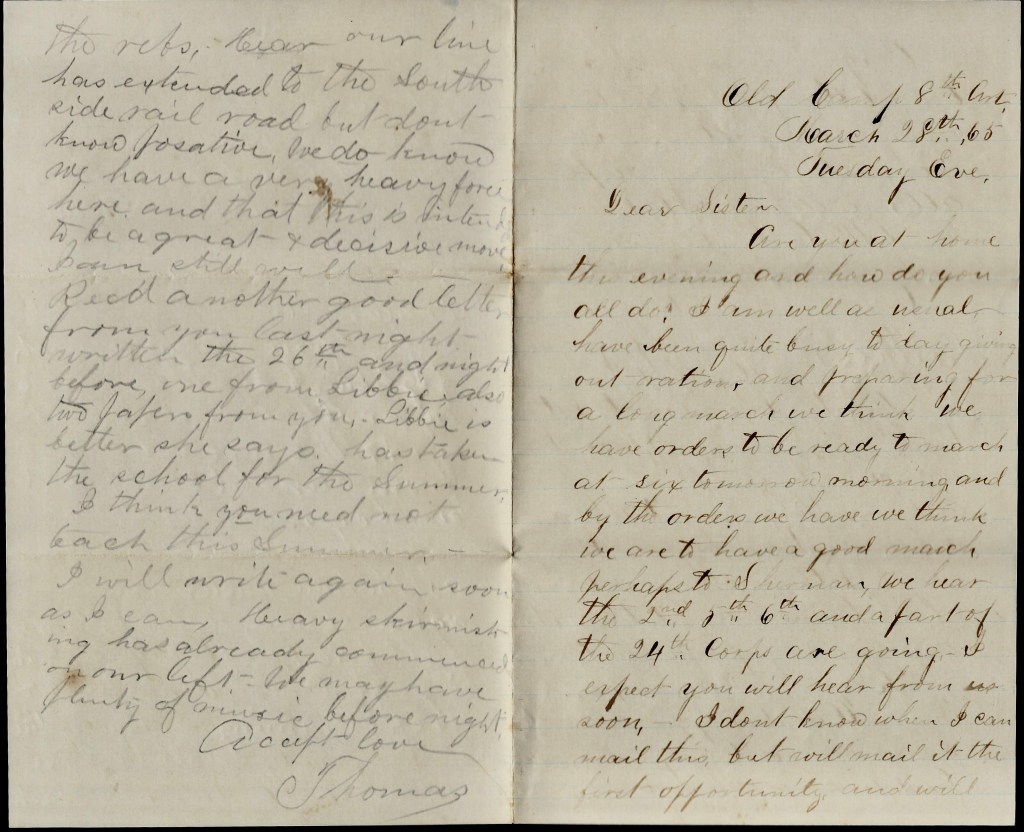 Old Camp 8th Art,
March 28th, 65
Tuesday Eve,
Dear Sister
Are you at home
this evening and how do you
all do? I am well as usual
have been quite busy to day giving
out rations, and preparing for
a long march we think we
have orders to be ready to march
at six tomorrow morning and
by the orders we have we think
we are to have a good march
perhaps to Sherman, we hear
the 2nd 5th 6th and a part of
the 24th Corps are going,- I
expect you will hear from us
soon,- I dont know when I can
mail this, but will mail it the
first opportunity, and will
the rebs,- Hear our line
has extended to the South
side rail road but dont
know posative, We do know
we have a very heavy force
here and that this is intend
to be a great & decisive move,
I am still well -
Rec'd another good letter
from you last night
written the 26th and night
before, one from Libbie also
two papers from you,- Libbie is
better she says. has taken
the school for the Summer,
I think you need not
teach this Summer,-
I will write again soon
as I can, Heavy skirmish
ing has already commenced
on our left.- We may have
plenty of music before night,
Accept love
Thomas